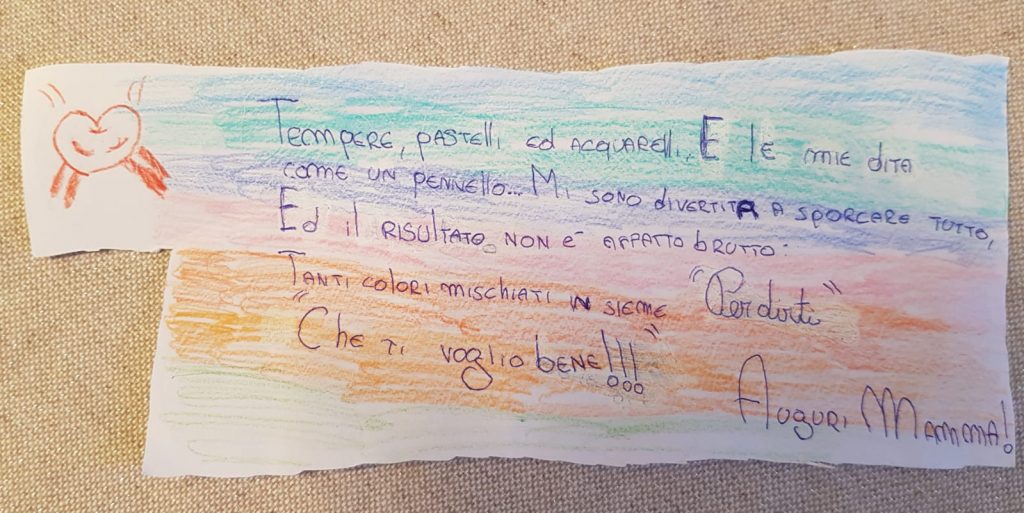 Tempere, pastelli ed acquarelli. E le mie dita
come un pennello... Mi sono divertita a sporcare tutto,
Ed il risultato non è affatto brutto:
Tanti colori mischiati in sieme "Per dirti"
"Che ti voglio bene!!!"
Auguri Mamma!